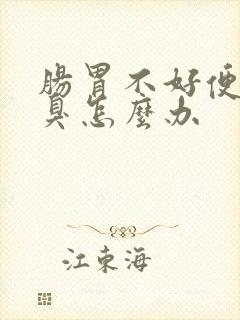 腸胃不好便
臭怎麼办
江東海